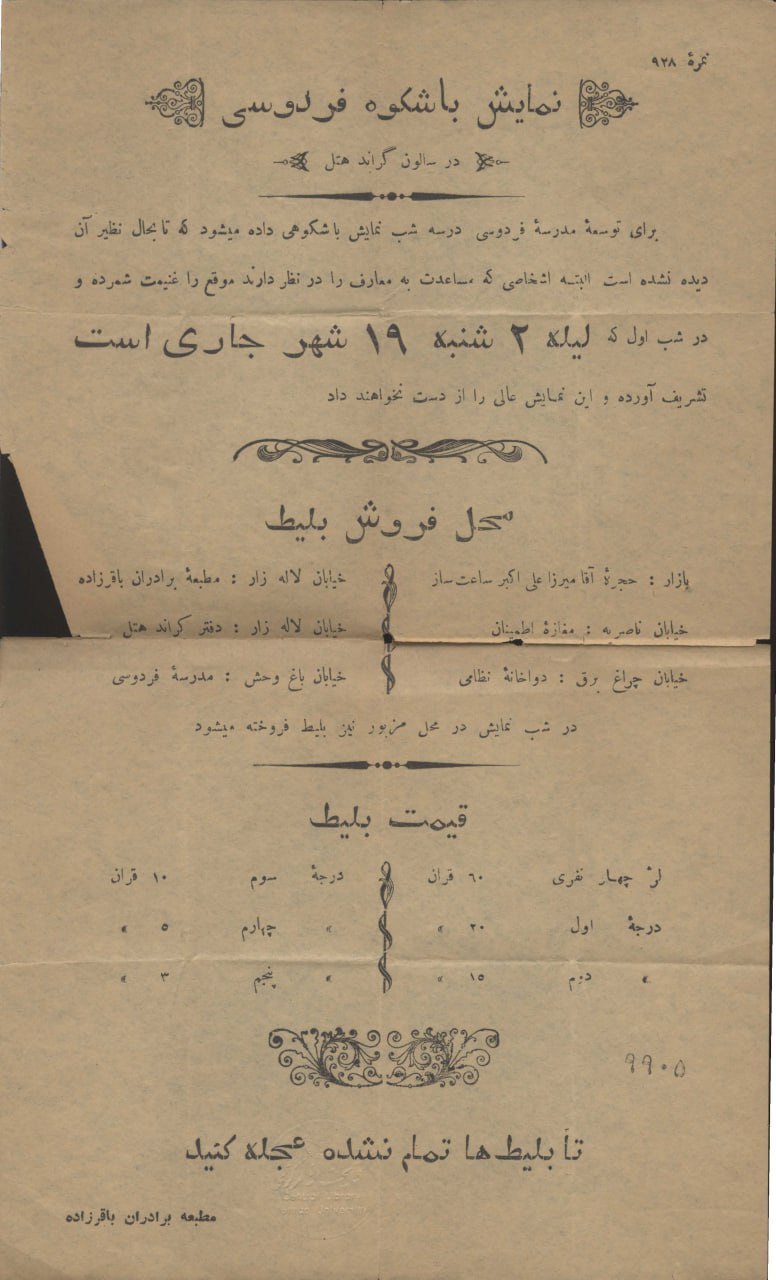 نمرۀ ۹۲۸
نمایش باشکوه فردوسی
در سالون گراند هتل
برای توسعۀ مدرسۀ فردوسی درسه شب نمایش باشکوهی داده میشود که تا بحال نظیر آن
دیده نشده است البته اشخاصی که مساعدت به معارف را در نظر دارند موقع را غنیمت شمرده و
در شب اول که لیله ۲ شنبه ۱۹ شهر جاری است
تشریف آورده و این نمایش عالی را از دست نخواهند داد
محل فروش بلیط
بازار : حجرۀ آقا میرزا علی اکبر ساعت ساز
خیابان لاله زار : مطبعۀ برادران باقرزاده
خیابان ناصریه : مغازۀ اطمینان
خیابان لاله زار : دفتر گراند هتل
خیابان چراغ برق : دواخانۀ نظامی
خیابان باغ وحش : مدرسۀ فردوسی
در شب نمایش در محل مزبور نیز بلیط فروخته میشود
قیمت بلیط
لژ چهار نفری ۶۰ قران
درجۀ سوم ۱۰ قران
درجۀ اول ۲۰ »
» چهارم ۵ »
» دوم ۱۵ »
» پنجم ۳ »
۹۹۰۵
تا بلیط ها تمام نشده عجله کنید
مطبعه برادران باقرزاده